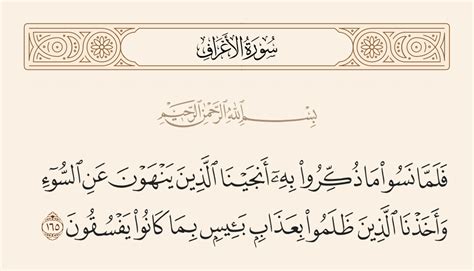 سُورَةُ الْأَعْرَافِ
بِسْمِ اللَّهِ الرَّحْمَٰنِ الرَّحِيمِ
فَلَمَّا نَسُوا۟ مَا ذُكِّرُوا۟ بِهِۦٓ أَنجَيْنَا ٱلَّذِينَ يَنْهَوْنَ عَنِ ٱلسُّوٓءِ
وَأَخَذْنَا ٱلَّذِينَ ظَلَمُوا۟ بِعَذَابٍۭ بَـِٔيسٍۭ بِمَا كَانُوا۟ يَفْسُقُونَ ١٦٥